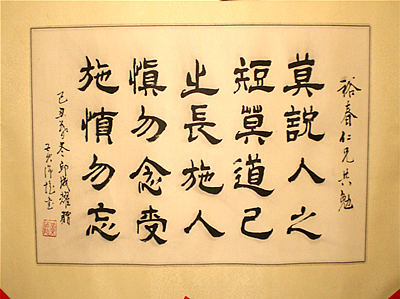 裕春仁兄共勉
莫說人之
短莫道己
之長施人
慎勿念受
施慎勿忘
己丑冬邱成耀